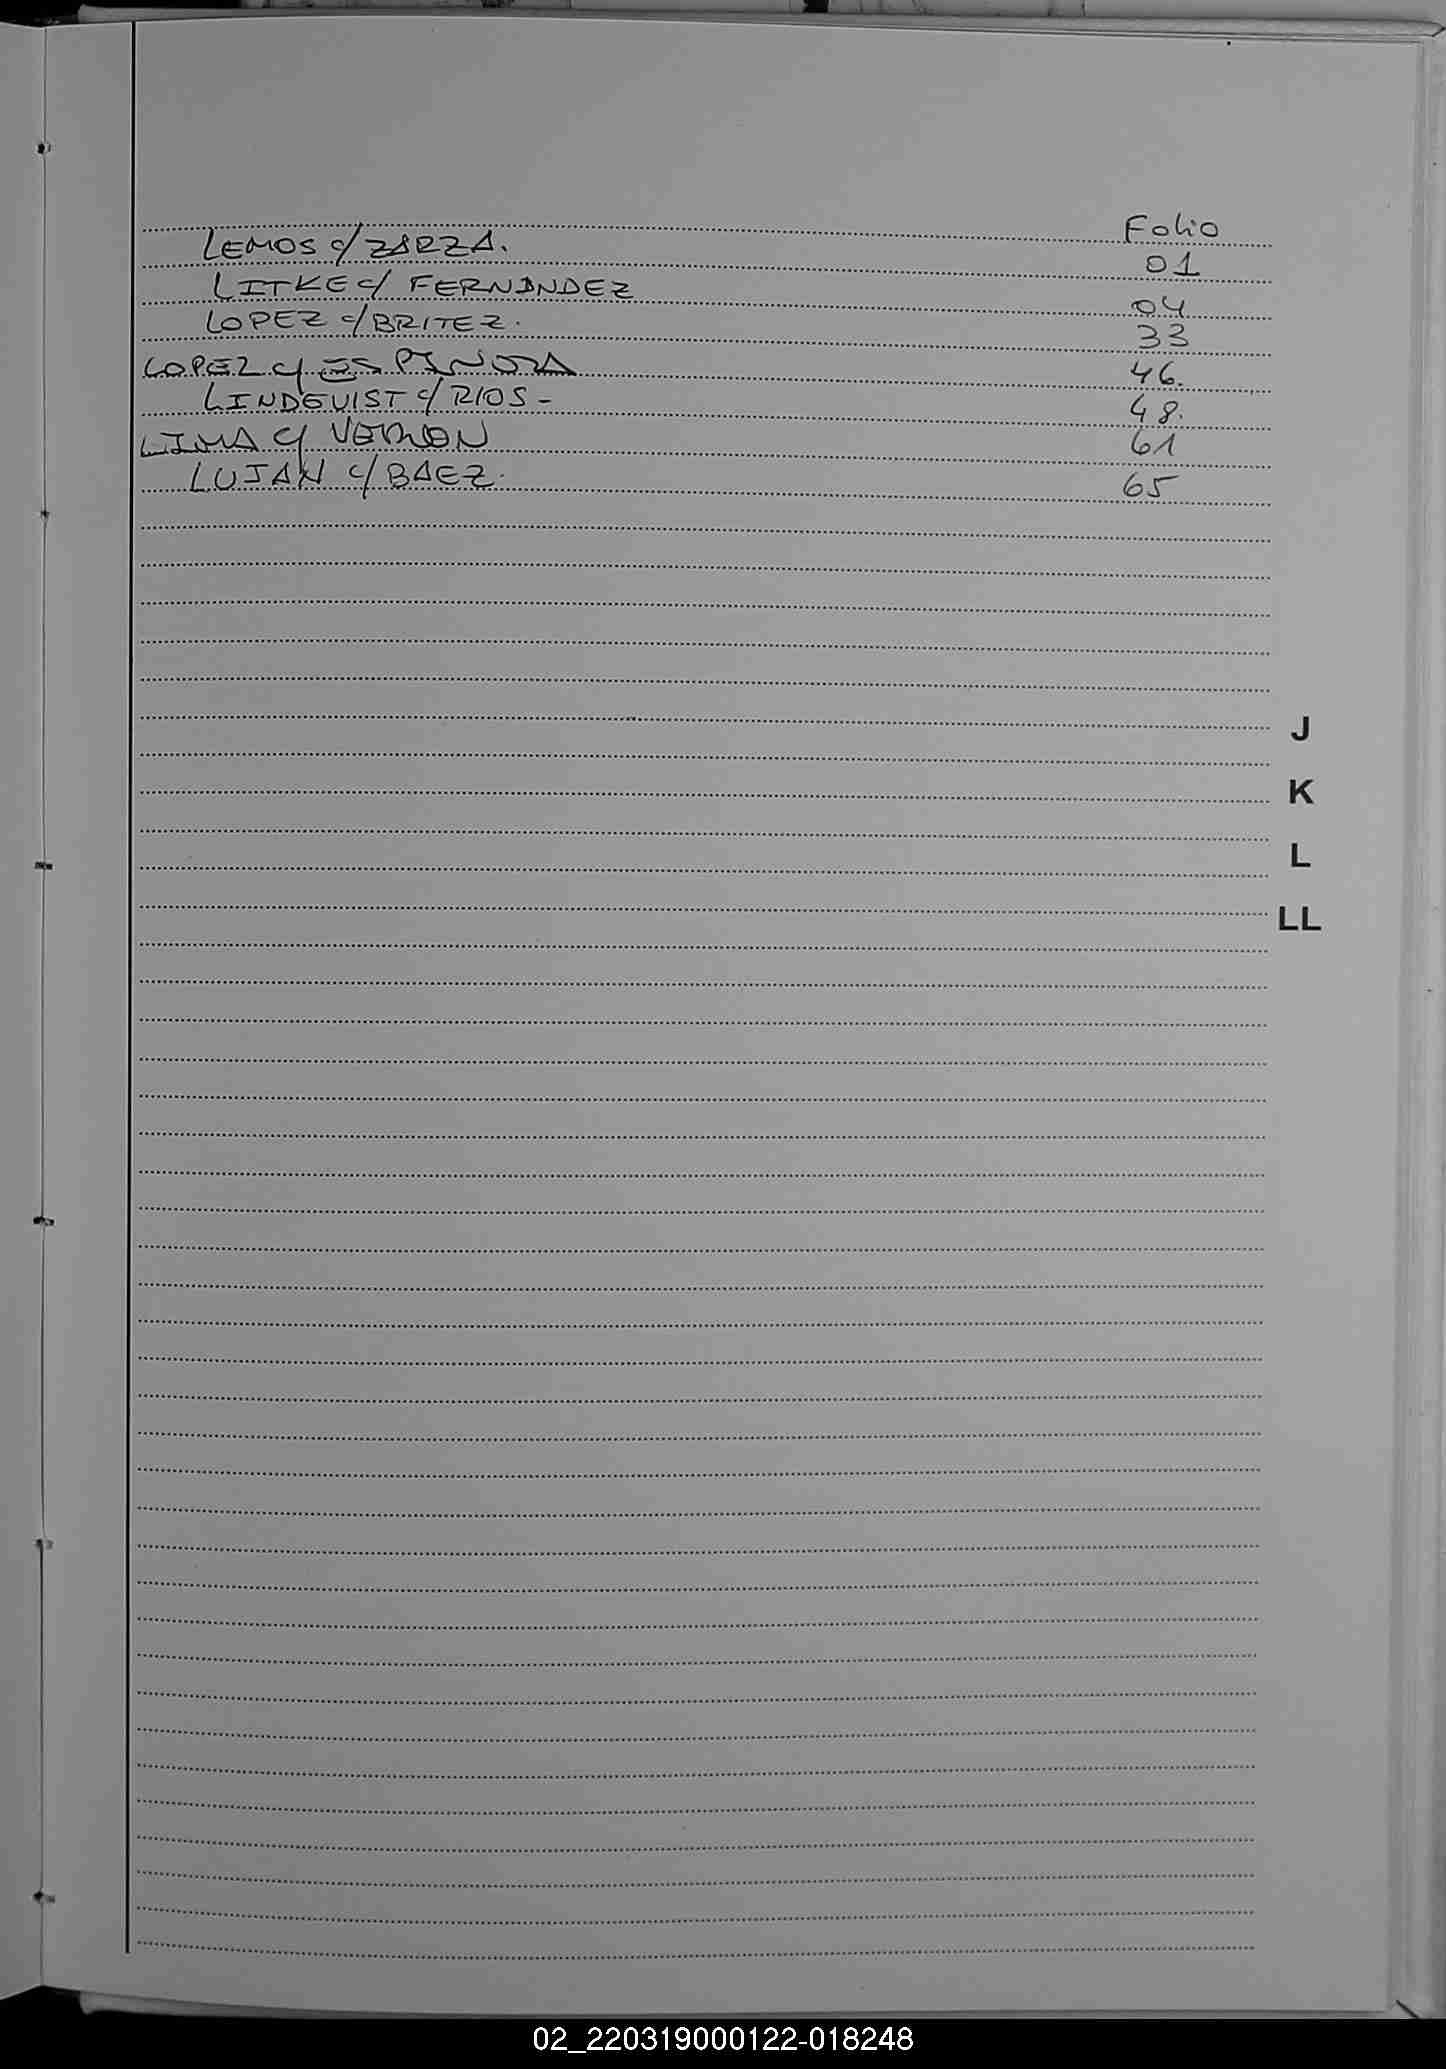 Folio
LEMOS c/ ZARZA. 01
LITKE c/ FERNANDEZ 04
LOPEZ c/ BRITEZ. 33
LOPEZ c/ ESPINOZA 46.
LINDQUIST c/ RIOS - 48.
LIMA c/ VERNON 61
LUJAN c/ BAEZ. 65
J
K
L
LL
02_220319000122-018248